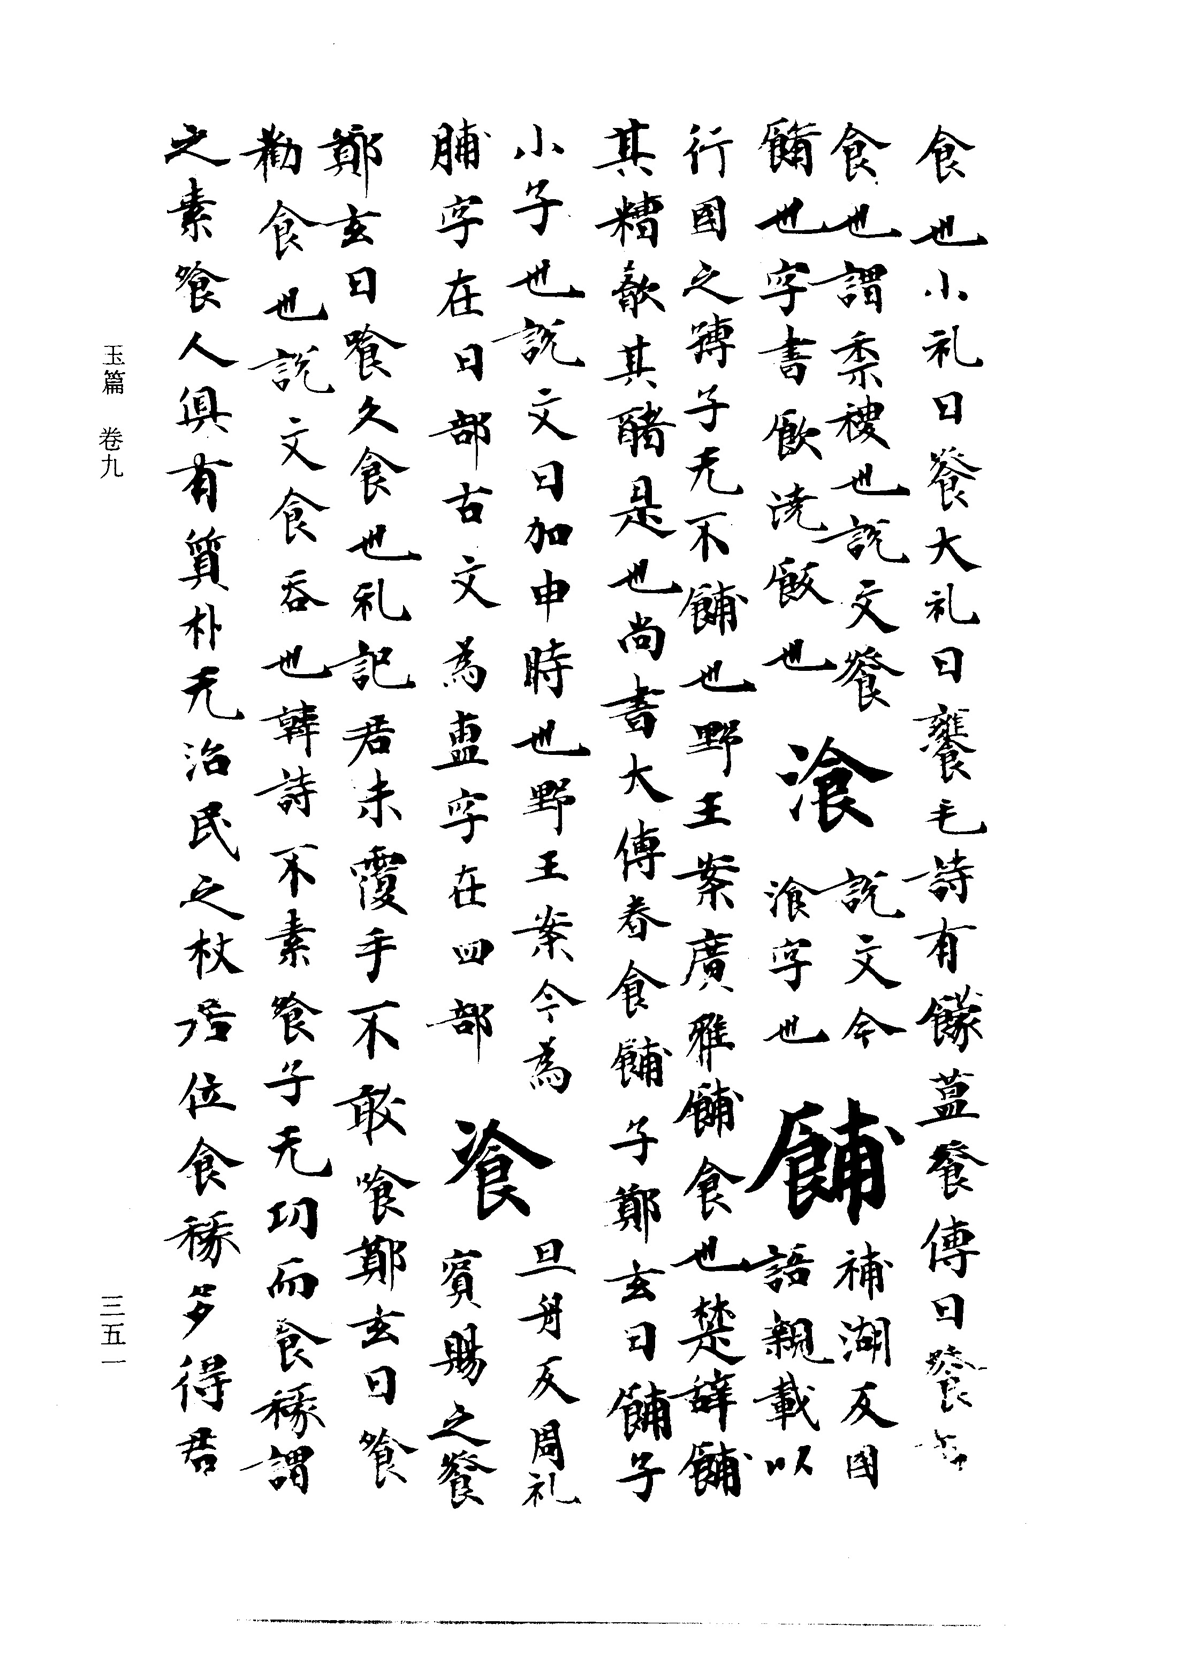 食也小礼曰飱大礼曰饔毛詩有饛簋飱傳曰飱
食也謂黍稷也說文飱
餔也字書飲澆飯也
湌
說文今
湌字也
餔
補湖反國
語親載以
行國之孺子无不餔也野王案廣雅餔食也楚辞餔
其糟歠其醨是也尚書大傳春食餔子鄭玄曰餔子
小子也說文曰加申時也野王案今為
脯字在日部古文為𥁊字在皿部
飡
且丹反周礼
賓賜之飱
鄭玄曰喰夕食也礼記君未覆手不敢喰鄭玄曰飡
勸食也說文食吞也韓詩不素飡子无功而食祿謂
之素飡人俱有質朴无治民之杖居位食祿多得君
玉篇 卷九
三五一